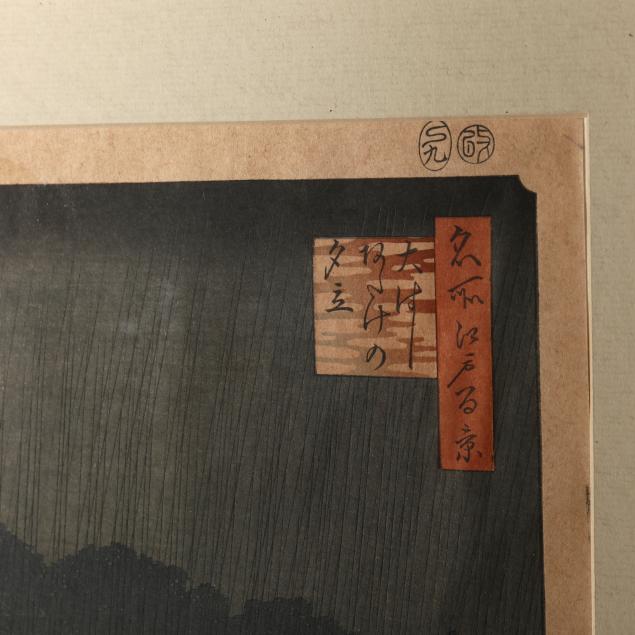 名所江戸百景
大はし
あたけの
夕立
改
巳九